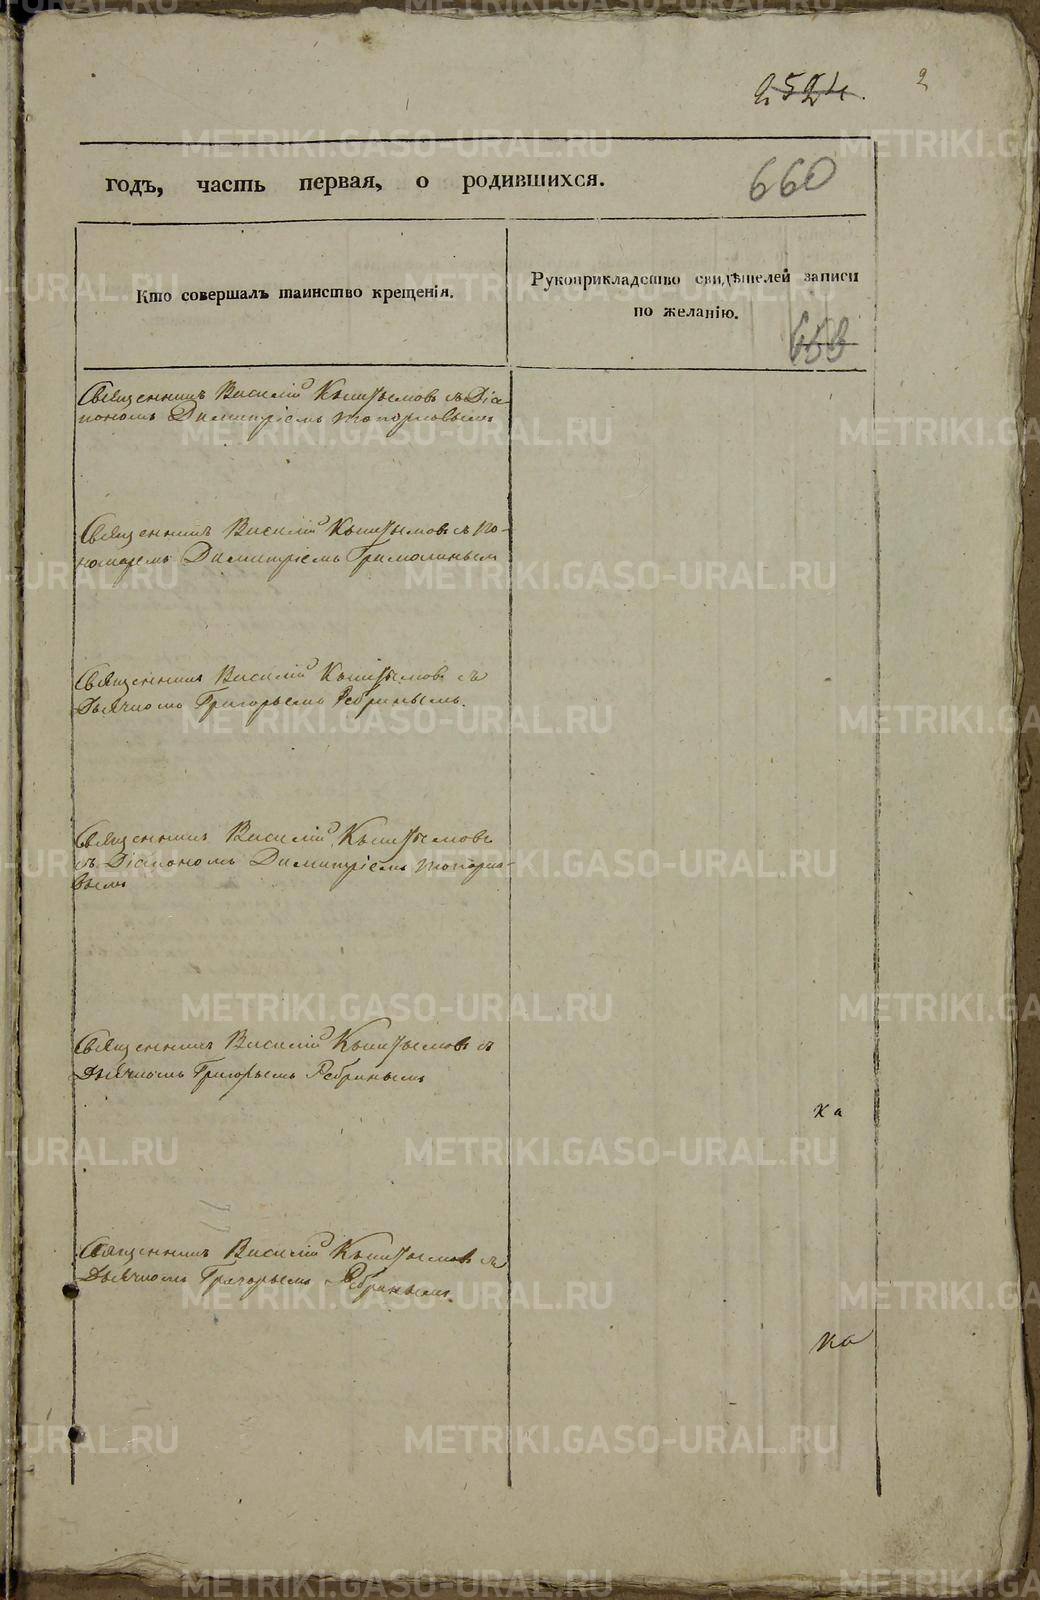 2524.
2
годъ, часть первая, о родившихся.
660
Кто совершалъ таинство крещенія.
Рукоприкладство свидѣтелей записи
по желанію.
Священникъ Василій Кыштымовъ съ Діа-
кономъ Димитріемъ Топорковымъ
Священникъ Василій Кыштымовъ съ По-
номаремъ Димитріемъ
Священникъ Василій Кыштымовъ съ
Дьячкомъ Григорьемъ Ребринымъ.
Священникъ Василій Кыштымовъ
съ Діакономъ Димитріемъ Топорко-
вымъ
Священникъ Василій Кыштымовъ съ
Дьячкомъ Григорьемъ Ребринымъ
ка
Священникъ Василій Кыштымовъ съ
Дьячкомъ Григорьемъ Ребринымъ.
ка
METRIKI.GASO-URAL.RU